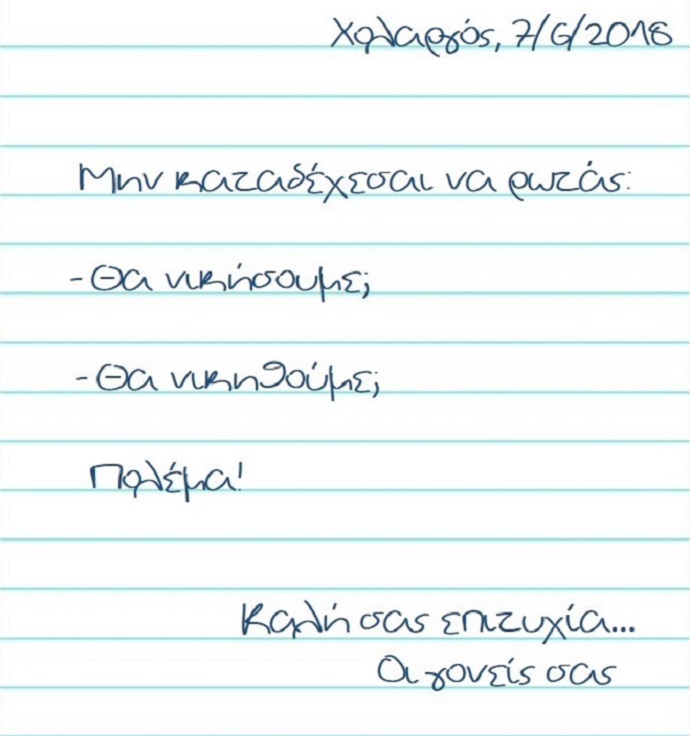 Χολαργός, 7/6/2018
Μην καταδέχεσαι να ρωτάς:
-Θα νικήσουμε;
-Θα νικηθούμε;
Πολέμα!
Καλή σας επιτυχία...
Οι γονείς σας